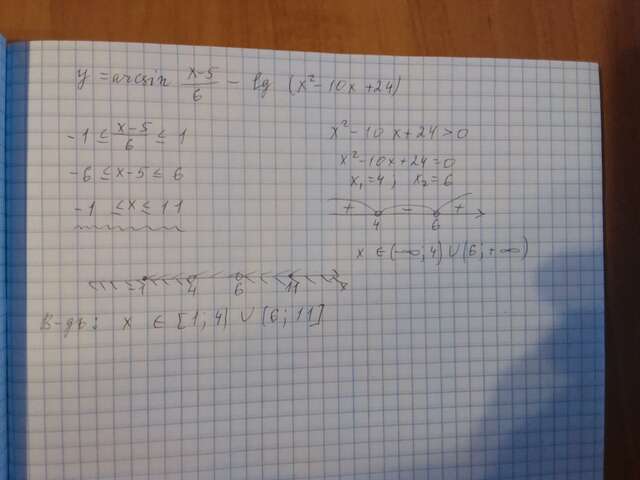 y = arcsin (x-5)/6 - lg (x² - 10x + 24)
-1 ≤ (x-5)/6 ≤ 1
-6 ≤ x-5 ≤ 6
-1 ≤ x ≤ 11
x² - 10x + 24 > 0
x² - 10x + 24 = 0
x₁ = 4; x₂ = 6
+ - +
4 6
x ∈ (-∞; 4) ∪ (6; +∞)
-1 4 6 11 x
В-дь: x ∈ [1; 4) ∪ (6; 11]